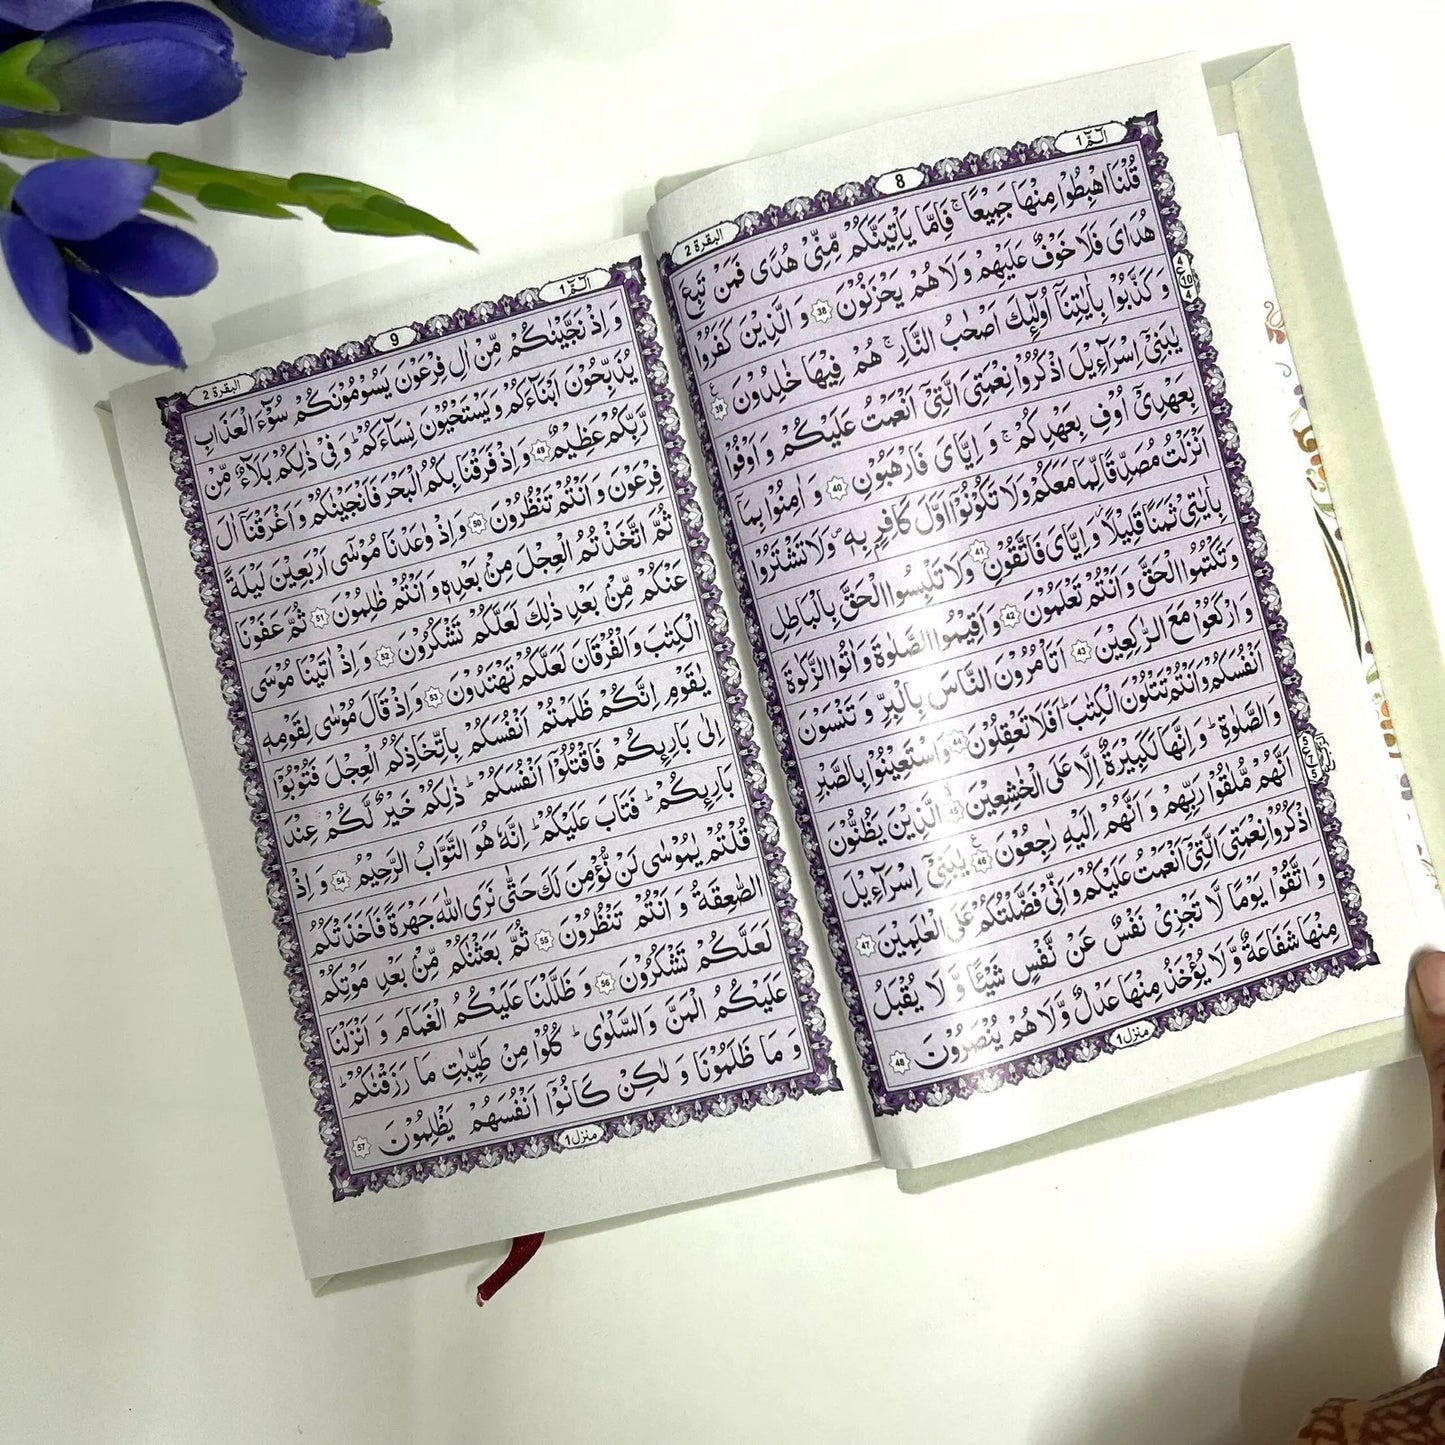 الٓمّٓ 1
8
البقرة 2
قُلْنَا اهْبِطُوْا مِنْهَا جَمِيْعًا ۚ فَاِمَّا يَاْتِيَنَّكُمْ مِّنِّيْ هُدًى فَمَنْ تَبِعَ
هُدَايَ فَلَا خَوْفٌ عَلَيْهِمْ وَلَا هُمْ يَحْزَنُوْنَ 38 وَ الَّذِيْنَ كَفَرُوْا
وَ كَذَّبُوْا بِاٰيٰتِنَاۤ اُولٰٓئِكَ اَصْحٰبُ النَّارِ ۚ هُمْ فِيْهَا خٰلِدُوْنَ 39 ع
يٰبَنِيْۤ اِسْرَآءِيْلَ اذْكُرُوْا نِعْمَتِيَ الَّتِيْۤ اَنْعَمْتُ عَلَيْكُمْ وَ اَوْفُوْا
بِعَهْدِيْۤ اُوْفِ بِعَهْدِكُمْ ۚ وَ اِيَّايَ فَارْهَبُوْنِ 40 وَ اٰمِنُوْا بِمَاۤ
اَنْزَلْتُ مُصَدِّقًا لِّمَا مَعَكُمْ وَلَا تَكُوْنُوْۤا اَوَّلَ كَافِرٍۭ بِهٖ ۪ وَلَا تَشْتَرُوْا
بِاٰيٰتِيْ ثَمَنًا قَلِيْلًا ؗ وَ اِيَّايَ فَاتَّقُوْنِ 41 وَلَا تَلْبِسُوا الْحَقَّ بِالْبَاطِلِ
وَ تَكْتُمُوا الْحَقَّ وَ اَنْتُمْ تَعْلَمُوْنَ 42 وَ اَقِيْمُوا الصَّلٰوةَ وَ اٰتُوا الزَّكٰوةَ
وَ ارْكَعُوْا مَعَ الرّٰكِعِيْنَ 43 اَتَاْمُرُوْنَ النَّاسَ بِالْبِرِّ وَ تَنْسَوْنَ
اَنْفُسَكُمْ وَاَنْتُمْ تَتْلُوْنَ الْكِتٰبَ ؕ اَفَلَا تَعْقِلُوْنَ 44 وَاسْتَعِيْنُوْا بِالصَّبْرِ
وَالصَّلٰوةِ ؕ وَ اِنَّهَا لَكَبِيْرَةٌ اِلَّا عَلَى الْخٰشِعِيْنَ 45 الَّذِيْنَ يَظُنُّوْنَ
اَنَّهُمْ مُّلٰقُوْا رَبِّهِمْ وَ اَنَّهُمْ اِلَيْهِ رٰجِعُوْنَ 46 ع يٰبَنِيْۤ اِسْرَآءِيْلَ
اذْكُرُوْا نِعْمَتِيَ الَّتِيْۤ اَنْعَمْتُ عَلَيْكُمْ وَ اَنِّيْ فَضَّلْتُكُمْ عَلَى الْعٰلَمِيْنَ 47
وَ اتَّقُوْا يَوْمًا لَّا تَجْزِيْ نَفْسٌ عَنْ نَّفْسٍ شَيْـًٔا وَّ لَا يُقْبَلُ
مِنْهَا شَفَاعَةٌ وَّ لَا يُؤْخَذُ مِنْهَا عَدْلٌ وَّ لَا هُمْ يُنْصَرُوْنَ 48
منزل 1
الٓمّٓ 1
9
البقرة 2
وَ اِذْ نَجَّيْنٰكُمْ مِّنْ اٰلِ فِرْعَوْنَ يَسُوْمُوْنَكُمْ سُوْٓءَ الْعَذَابِ
يُذَبِّحُوْنَ اَبْنَآءَكُمْ وَ يَسْتَحْيُوْنَ نِسَآءَكُمْ ؕ وَ فِيْ ذٰلِكُمْ بَلَآءٌ مِّنْ
رَّبِّكُمْ عَظِيْمٌ 49 وَ اِذْ فَرَقْنَا بِكُمُ الْبَحْرَ فَاَنْجَيْنٰكُمْ وَ اَغْرَقْنَاۤ اٰلَ
فِرْعَوْنَ وَ اَنْتُمْ تَنْظُرُوْنَ 50 وَ اِذْ وٰعَدْنَا مُوْسٰۤى اَرْبَعِيْنَ لَيْلَةً
ثُمَّ اتَّخَذْتُمُ الْعِجْلَ مِنْۢ بَعْدِهٖ وَ اَنْتُمْ ظٰلِمُوْنَ 51 ثُمَّ عَفَوْنَا
عَنْكُمْ مِّنْۢ بَعْدِ ذٰلِكَ لَعَلَّكُمْ تَشْكُرُوْنَ 52 وَ اِذْ اٰتَيْنَا مُوْسَى
الْكِتٰبَ وَ الْفُرْقَانَ لَعَلَّكُمْ تَهْتَدُوْنَ 53 وَ اِذْ قَالَ مُوْسٰى لِقَوْمِهٖ
يٰقَوْمِ اِنَّكُمْ ظَلَمْتُمْ اَنْفُسَكُمْ بِاتِّخَاذِكُمُ الْعِجْلَ فَتُوْبُوْۤا
اِلٰى بَارِىِٕكُمْ فَاقْتُلُوْۤا اَنْفُسَكُمْ ؕ ذٰلِكُمْ خَيْرٌ لَّكُمْ عِنْدَ
بَارِىِٕكُمْ ؕ فَتَابَ عَلَيْكُمْ ؕ اِنَّهٗ هُوَ التَّوَّابُ الرَّحِيْمُ 54 وَ اِذْ
قُلْتُمْ يٰمُوْسٰى لَنْ نُّؤْمِنَ لَكَ حَتّٰى نَرَى اللّٰهَ جَهْرَةً فَاَخَذَتْكُمُ
الصّٰعِقَةُ وَ اَنْتُمْ تَنْظُرُوْنَ 55 ثُمَّ بَعَثْنٰكُمْ مِّنْۢ بَعْدِ مَوْتِكُمْ
لَعَلَّكُمْ تَشْكُرُوْنَ 56 وَ ظَلَّلْنَا عَلَيْكُمُ الْغَمَامَ وَ اَنْزَلْنَا
عَلَيْكُمُ الْمَنَّ وَالسَّلْوٰى ؕ كُلُوْا مِنْ طَيِّبٰتِ مَا رَزَقْنٰكُمْ ؕ
وَ مَا ظَلَمُوْنَا وَ لٰكِنْ كَانُوْۤا اَنْفُسَهُمْ يَظْلِمُوْنَ 57
منزل 1